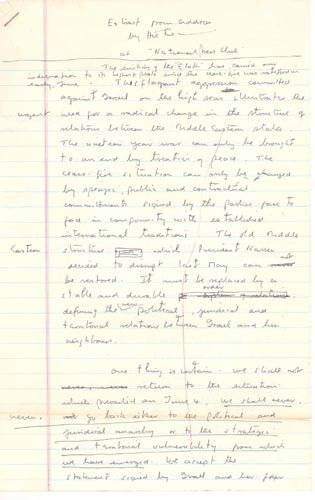 Extract from address
by
at National Press Club
The sinking of the "Elath" has carried any
indignation to its highest peak since the cease-fire was ratified in
early June. This flagrant aggression committed
against Israel on the high seas illustrates the
urgent need for a radical change in the structure of
relations between the Middle Eastern states.
The nineteen year war can only be brought
to an end by treaties of peace. The
cease-fire situation can only be changed
by agreed, public and contractual
commitments signed by the parties face to
face in conformity with established
international traditions. The old Middle
Eastern structure which President Nasser
decided to disrupt last May can not
be restored. It must be replaced by a
stable and durable order
defining the new political, juridical and
territorial relations between Israel and her
neighbours.
One thing is certain: we shall not
return to the situation
which prevailed on June 4. We shall never,
never, go back either to the political and
juridical anarchy or to the strategic
and territorial vulnerability from which
we have emerged. We accept the
statement signed by Israel and her four